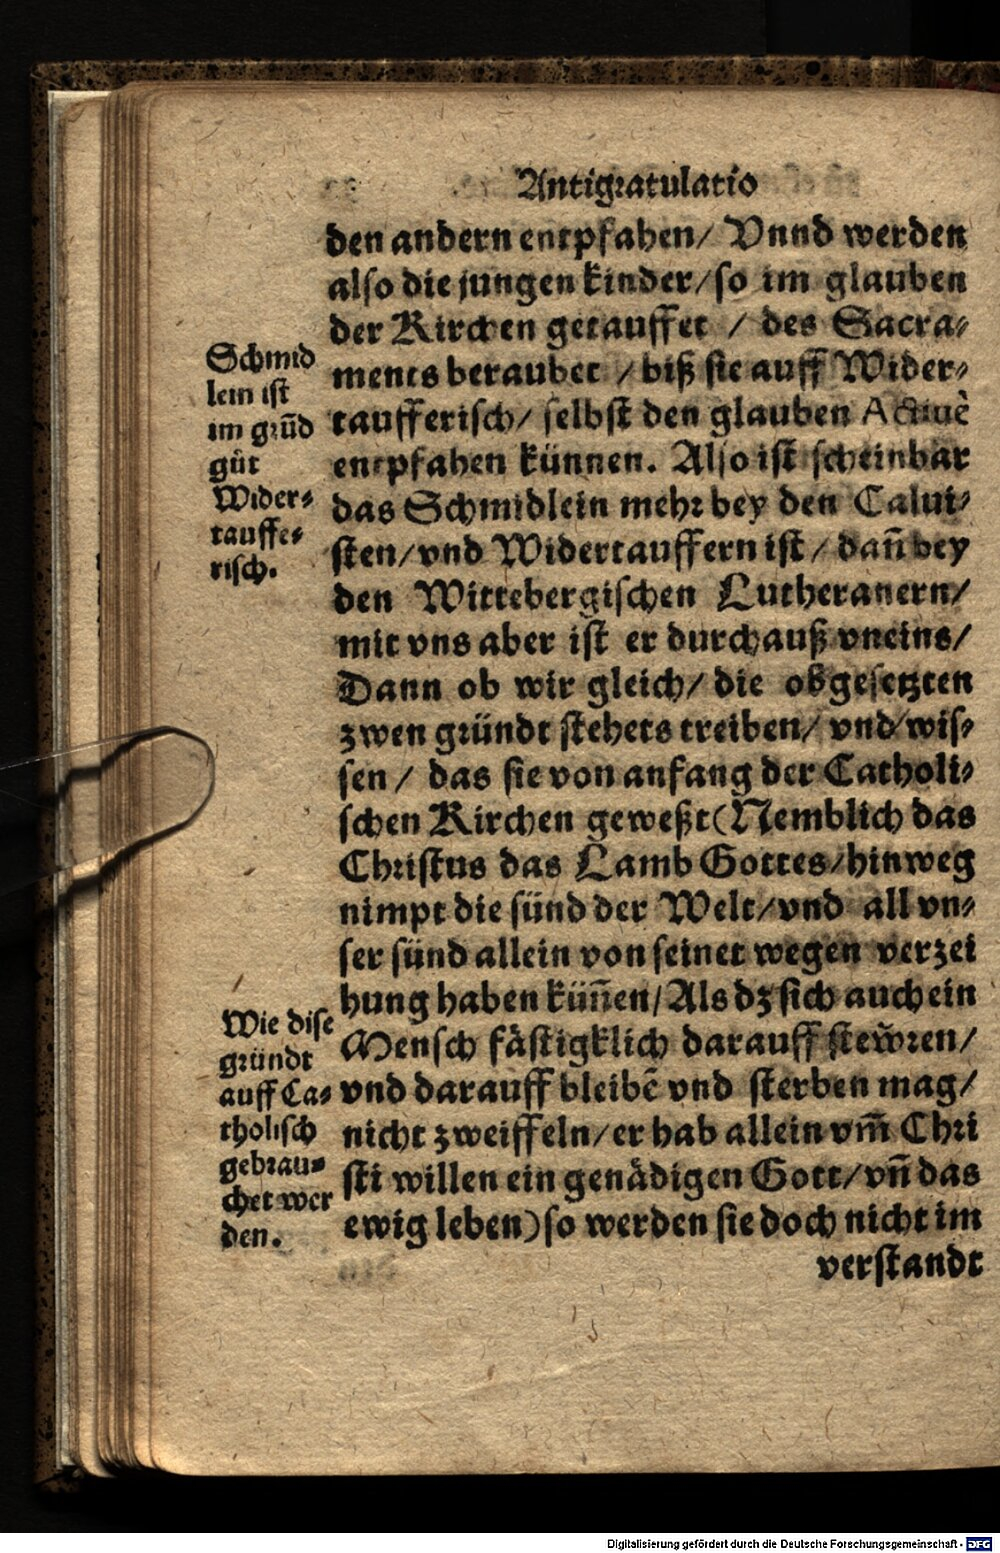 Antigratulatio
den andern entpfahen/ Vnnd werden
also die jungen kinder/ so im glauben
der Kirchen getauffet / des Sacra-
ments beraubet / biß sie auff Wider-
taufferisch/ selbst den glauben Actiuè
entpfahen künnen. Also ist scheinbar
das Schmidlein mehr bey den Calui-
sten/ vnd Widertauffern ist / dañ bey
den Wittebergischen Lutheranern/
mit vns aber ist er durchauß vneins/
Dann ob wir gleich/ die obgesetzten
zwen gründt stehets treiben/ vnd wis-
sen / das sie von anfang der Catholi-
schen Kirchen geweßt (Nemblich das
Christus das Lamb Gottes/ hinweg
nimpt die sünd der Welt/ vnd all vn-
ser sünd allein von seinet wegen verzei
hung haben küñen/ Als dz sich auch ein
Mensch fästigklich darauff steẅren/
vnd darauff bleibē vnd sterben mag/
nicht zweiffeln/ er hab allein vm̃ Chri
sti willen ein genädigen Gott/ vñ das
ewig leben) so werden sie doch nicht im
verstandt
Schmid
lein ist
im grũd
gůt
Wider-
tauffe-
risch.
Wie dise
gründt
auff Ca-
tholisch
gebrau-
chet wer
den.
Digitalisierung gefördert durch die Deutsche Forschungsgemeinschaft - DFG